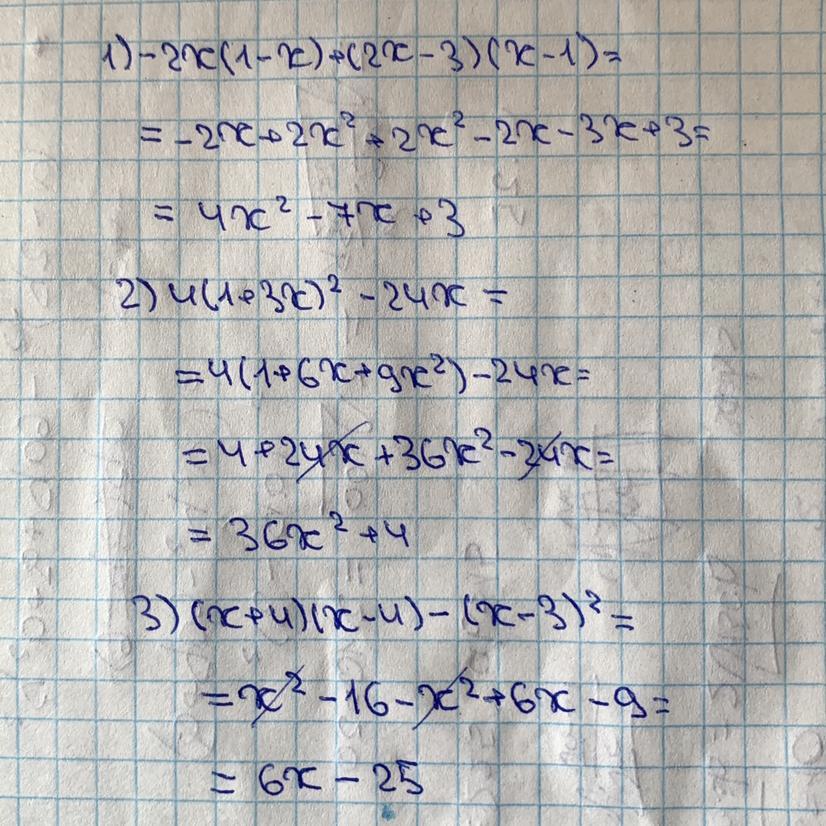 1) -2x(1-x)+(2x-3)(x-1)=
= -2x+2x²+2x²-2x-3x+3=
= 4x² -7x +3
2) 4(1+3x)² -24x =
=4(1+6x+9x²)-24x=
=4+24x+36x²-24x=
= 36x²+4
3) (x+4)(x-4)-(x-3)²=
=x²-16-x²+6x-9=
= 6x-25